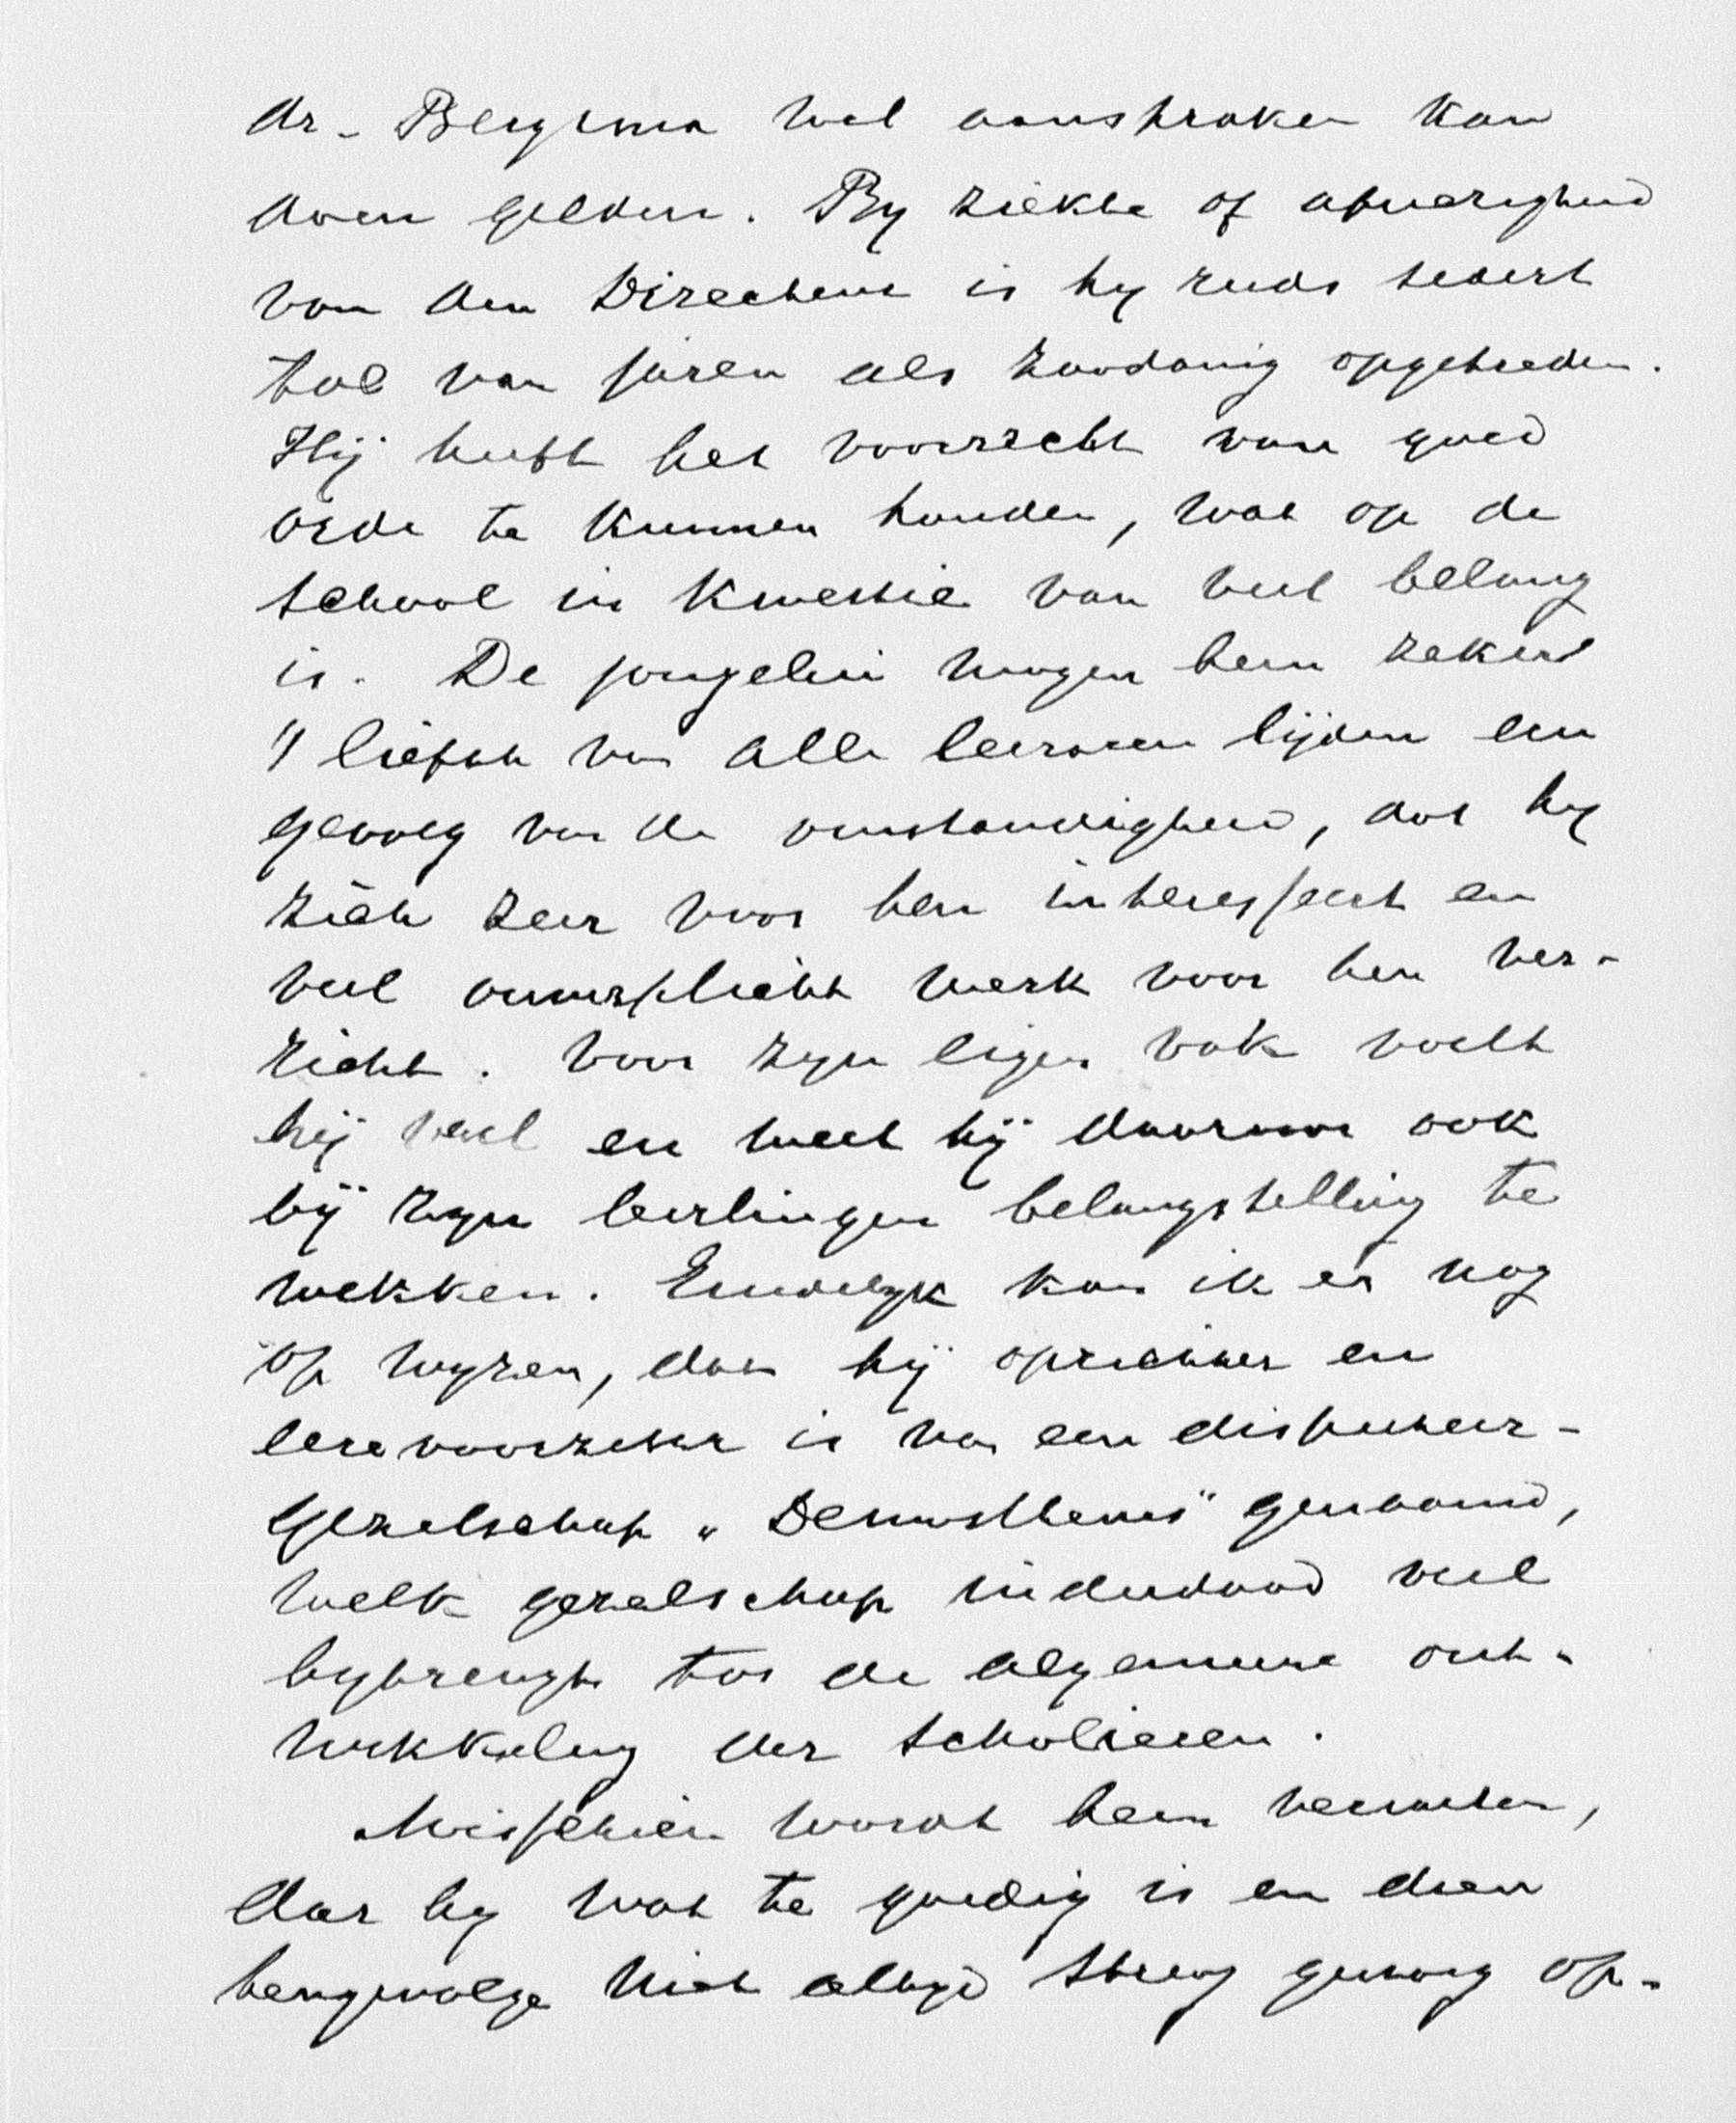 dr. Bergsma wel aanspraken kan
doen gelden. By ziekte of afwezigheid
van den Directeur is hy reeds sedert
tal van jaren als zoodanig opgetreden.
Hij heeft het voorrecht van goed
orde te kunnen houden, wat op de
school in kwestie van veel belang
is. De jongelui mogen hem zeker
't liefst van alle leeraren lijden een
gevolg van de omstandigheid, dat hy
zich zeer voor hen interesseert en
veel onverplicht werk voor hen ver-
richt. Voor zyn eigen vak voelt
hij veel en weet hij daarvoor ook
bij zyn leerlingen belangstelling te
wekken. Eindelyk kan ik er nog
op wyzen, dat hij oprichter en
eerevoorzitter is van een disputeer-
gezelschap „Demosthenes" genaamd,
welk gezelschap inderdaad veel
bybrengt tot de algemeene ont-
wikkeling der scholieren.
Misschien wordt hem verweten,
dat hy wat te goedig is en dien
tengevolge niet altyd streng genoeg op-